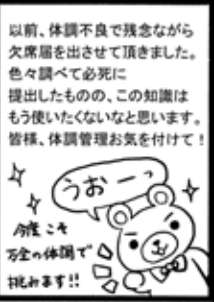 以前、体調不良で残念ながら
欠席届を出させて頂きました。
色々調べて必死に
提出したものの、この知識は
もう使いたくないなと思います。
皆様、体調管理お気を付けて！
うおーっ
今度こそ
万全の体調で
挑みます!!